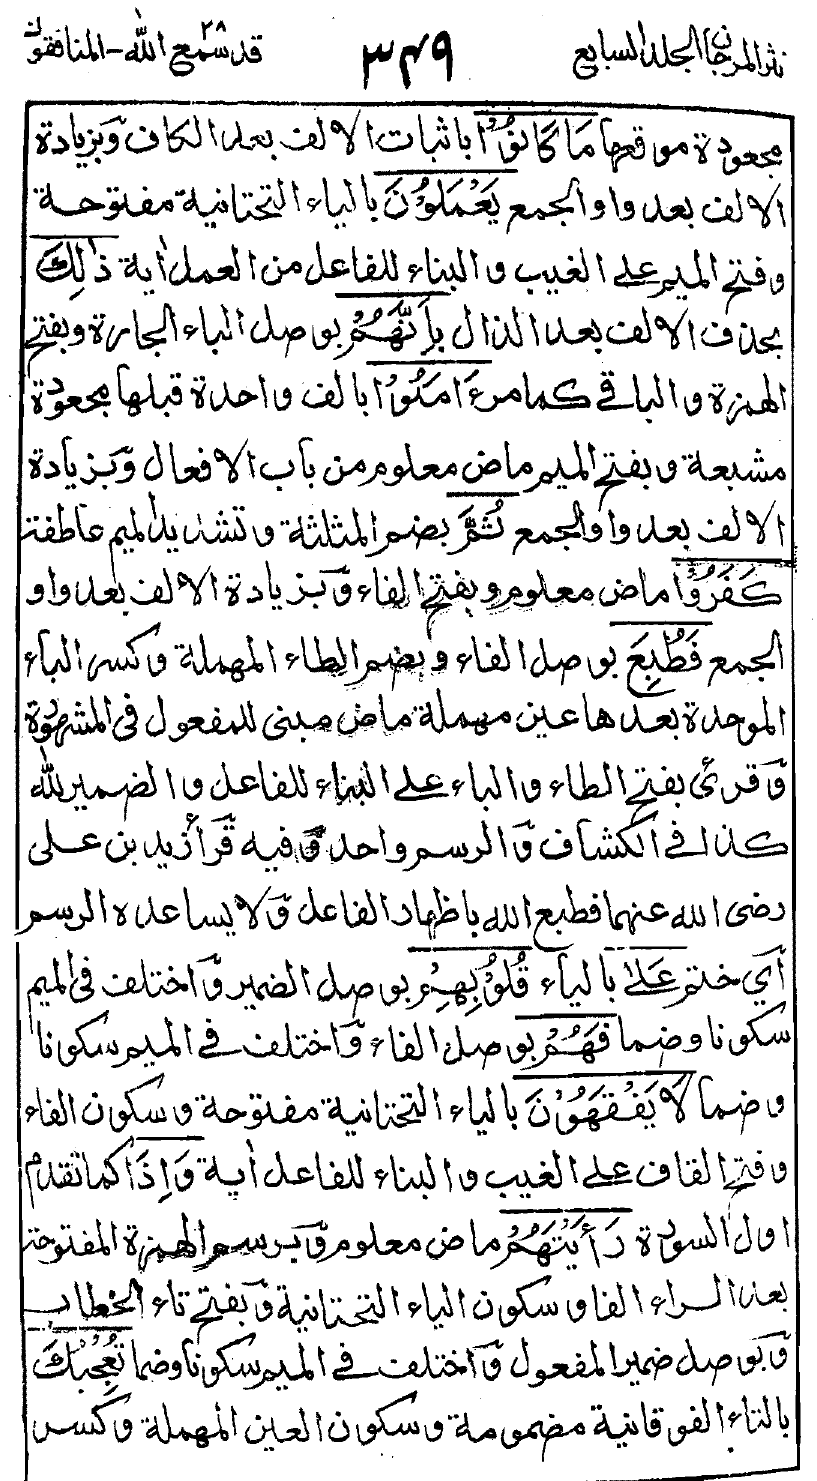 نثر المرجان الجلد السابع ٣٤٩ قد سمع الله ٢٨ - المنافقون
مجعودة موقعها مَا كَانُوْا باثبات الالف بعد الكاف وبزيادة
الالف بعد واو الجمع يَعْمَلُوْنَ بالياء التحتانية مفتوحة
وفتح الميم على الغيب والبناء للفاعل من العمل اٰية ذٰلِكَ
بحذف الالف بعد الذال بِاَنَّهُمْ بوصل الباء الجارة وبفتح
الهمزة والباقي كما مرءَامَنُوْا بالف واحدة قبلها مجعودة
مشبعة وبفتح الميم ماض معلوم من باب الافعال وبزيادة
الالف بعد واو الجمع ثُمَّ بضم المثلثة وتشديد الميم عاطفة
كَفَرُوْا ماض معلوم وبفتح الفاء وبزيادة الالف بعد واو
الجمع فَطُبِعَ بوصل الفاء وبضم الطاء المهملة وكسر الباء
الموحدة بعدها عين مهملة ماض مبني للمفعول في المشهورة
وقرئ بفتح الطاء والباء على البناء للفاعل والضمير لله
كذا في الكشاف والرسم واحد وفيه قرأ زيد بن على
رضى الله عنهما فطبع الله باظهار الفاعل ولا يساعده الرسم
اي ختم عَلٰى بالياء قُلُوْبِهِمْ بوصل الضمير واختلف في الميم
سكونا وضما فَهُمْ بوصل الفاء واختلف في الميم سكونا
وضما لَا يَفْقَهُوْنَ بالياء التحتانية مفتوحة وسكون الفاء
وفتح القاف على الغيب والبناء للفاعل اٰية وَاِذَا كما تقدم
اول السورة رَأَيْتَهُمْ ماض معلوم وبرسم الهمزة المفتوحة
بعد الراء الفا وسكون الياء التحتانية وبفتح تاء الخطاب
وبوصل ضمير المفعول واختلف في الميم سكونا وضما تُعْجِبُكَ
بالتاء الفوقانية مضمومة وسكون العين المهملة وكسر